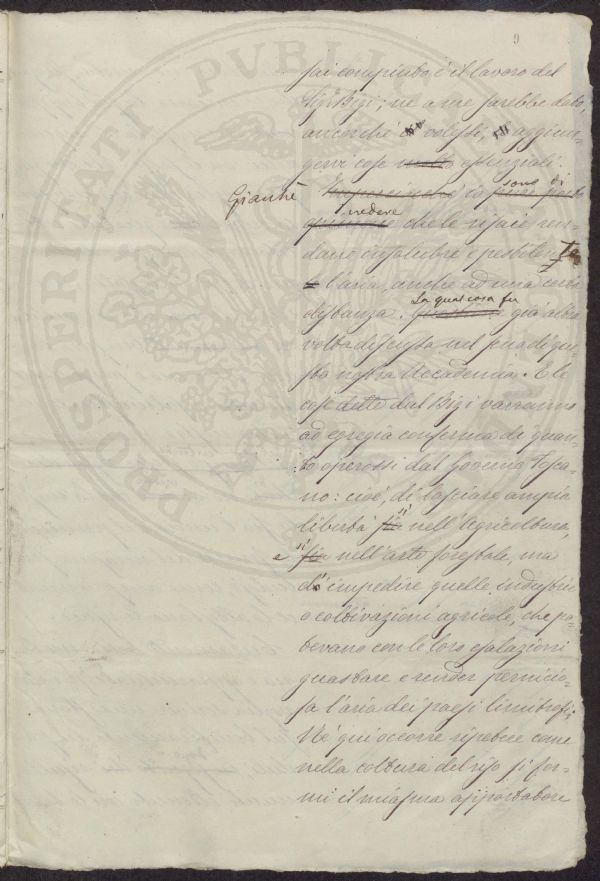 9
PROSPERITATI PVBLICAE
sai compiuto è il lavoro del
Sig.r Bigi; né a me sarebbe dato,
ancorché volessi, aggiun-
gervi cose molto essenziali.
Gianné sono di
vedere
che le risaie ren-
dano insalubre e pestilen-
l'aria, anche ad una certa
distanza. La qual cosa fu già altra
volta discussa nel seno di que-
sta nostra Accademia. E le
cose dette dal Bigi varranno
ad egregia conferma di quan-
to operossi dal Governo Tosca-
no: cioè, di lasciare ampia
libertà sì nell'Agricoltura,
e sì nell'arte forestale, ma
d'impedire quelle industrie
o coltivazioni agricole, che po-
tevano con le loro esalazioni
guastare e render pernicio-
sa l'aria dei paesi limitrofi.
Né qui occorre ripetere come
nella coltura del riso si for-
mi il miasma apportatore